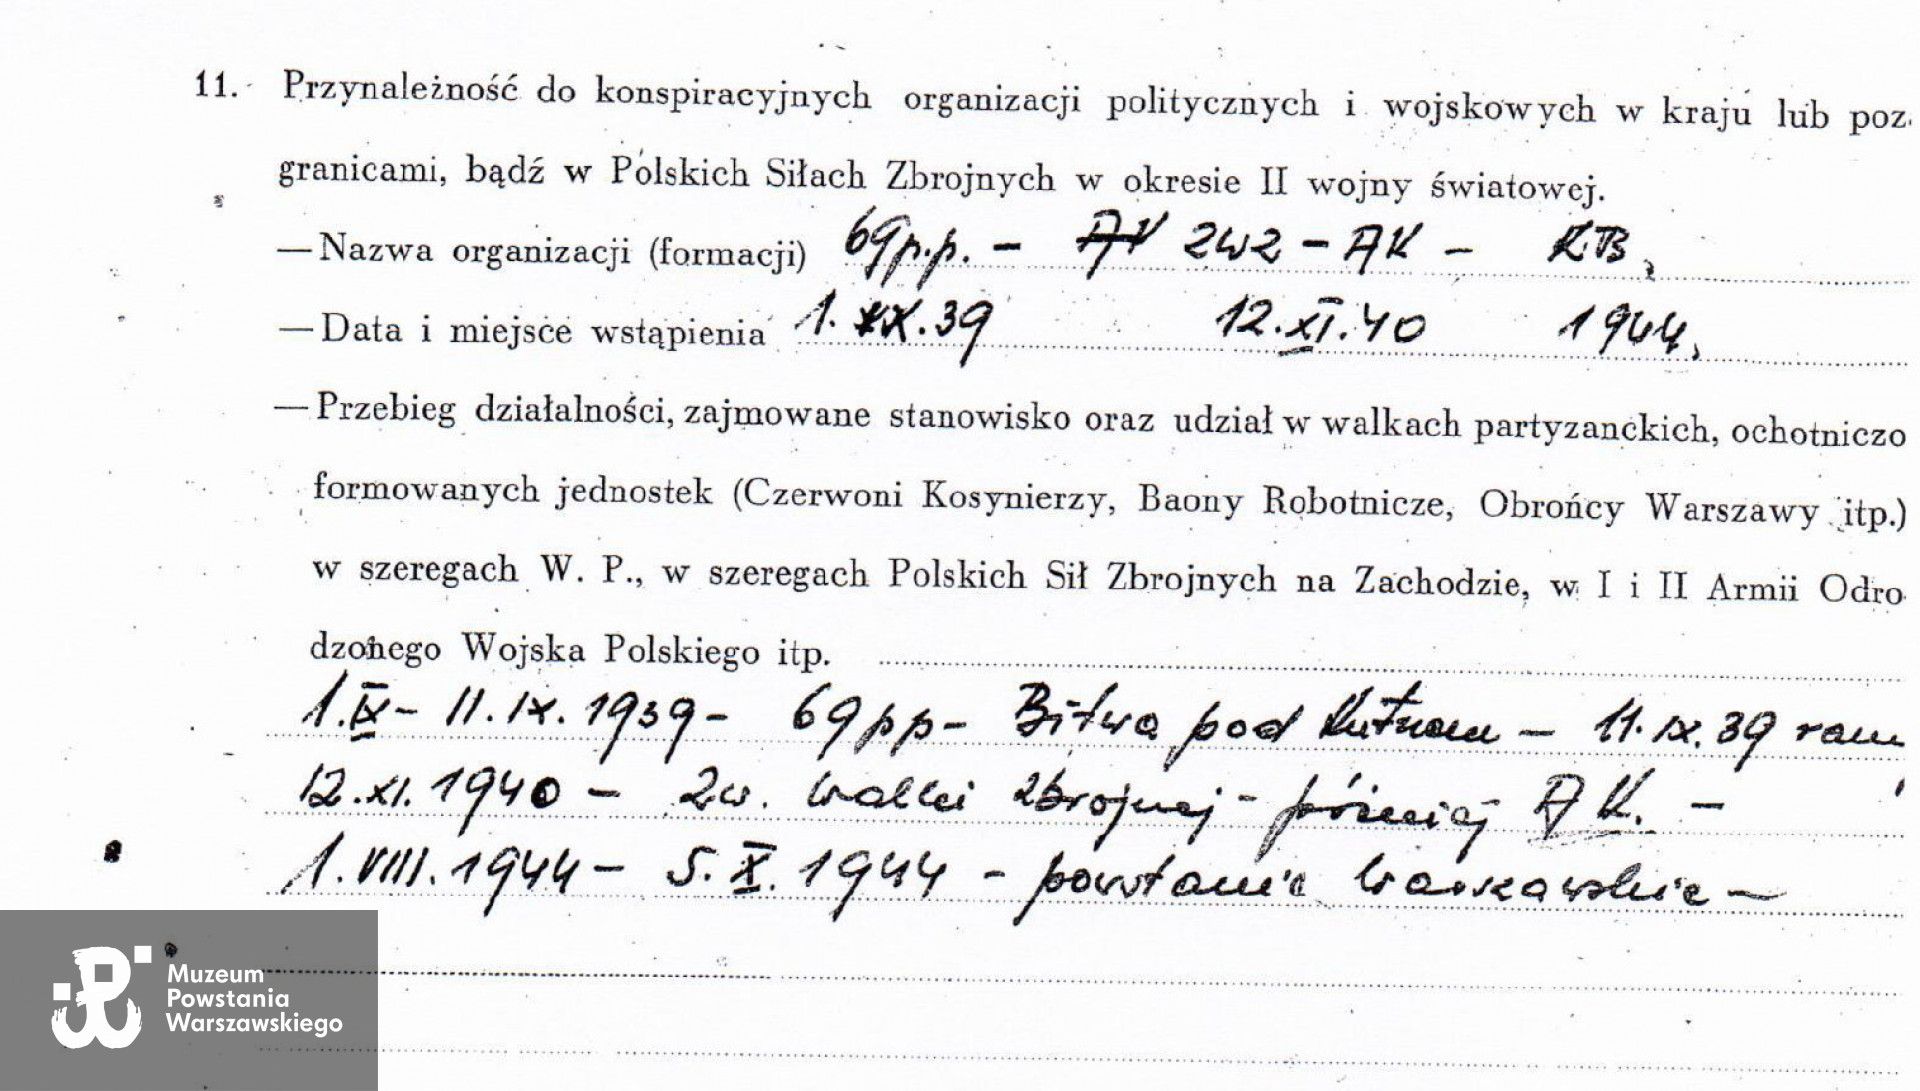 11. Przynależność do konspiracyjnych organizacji politycznych i wojskowych w kraju lub poz
granicami, bądź w Polskich Siłach Zbrojnych w okresie II wojny światowej.
— Nazwa organizacji (formacji) 69p.p. – AK ZWZ – AK – KB,
— Data i miejsce wstąpienia 1. IX.39 12.XI.40 1944,
— Przebieg działalności, zajmowane stanowisko oraz udział w walkach partyzanckich, ochotniczo
formowanych jednostek (Czerwoni Kosynierzy, Baony Robotnicze, Obrońcy Warszawy itp.)
w szeregach W. P., w szeregach Polskich Sił Zbrojnych na Zachodzie, w I i II Armii Odro
dzonego Wojska Polskiego itp.
1.IX – 11.IX.1939 – 69pp – Bitwa pod Kutnem – 11.IX.39
12.XI.1940 – Zw. Walki zbrojnej – później AK. –
1.VIII.1944 – 5.X.1944 – powstanie Warszawskie –
Muzeum
Powstania
Warszawskiego